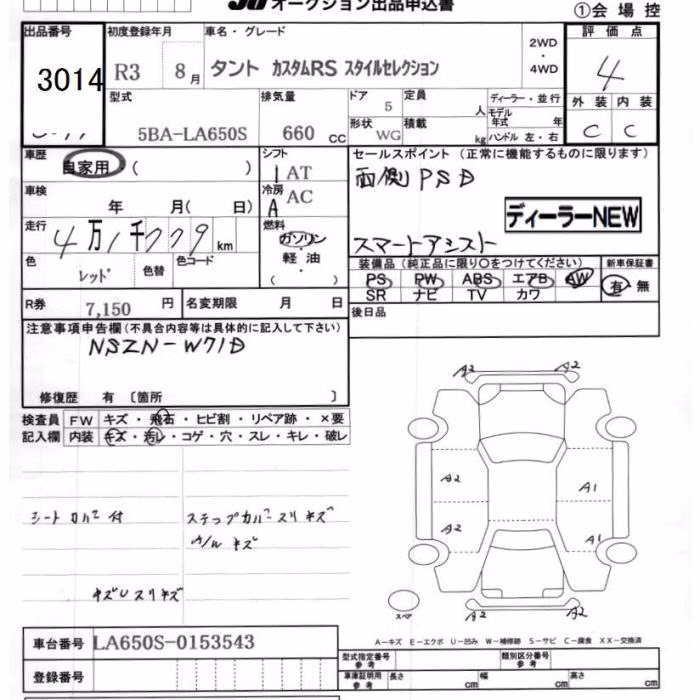 オークション出品申込書 ①会場控
出品番号 初度登録年月 車名・グレード 2WD・4WD 評価点
3014 R3 8月 タント カスタムRS スタイルセレクション 4
型式 排気量 ドア 定員 ディーラー・並行 外装 内装
5BA-LA650S 660 cc 5 人 モデル年式 年 C C
形状 WG 積載 kg ハンドル 左・右
車歴 自家用 ( ) シフト AT セールスポイント (正常に機能するものに限ります)
車検 年 月( 日) 冷房 A AC 両側PSD
ディーラーNEW
走行 4万1千779km 燃料 ガソリン・軽油 ( ) スマートアシスト
色 レッド 色替 色コード 装備品 (純正品に限り○をつけてください) 新車保証書
PS PW ABS エアB AW 有・無
SR ナビ TV カワ
R券 7,150 円 名変期限 月 日 後日品
注意事項申告欄(不具合内容等は具体的に記入して下さい)
NSZN-W71D
修復歴 有〔箇所 〕
検査員 FW キズ・飛石・ヒビ割・リペア跡・×要
記入欄 内装 キズ・汚レ・コゲ・穴・スレ・キレ・破レ
A2 A2
A2 A1
A2 A1
シートカバー付 ステップカバースリキズ
A/Wキズ
キズUスリキズ
スペア
A2 A2
A-キズ E-エクボ U-凹み W-補修跡 S-サビ C-腐食 XX-交換済
車台番号 LA650S-0153543
登録番号
型式指定番号 参考 類別区分番号 参考
車庫証明用 参考 長さ cm 幅 cm 高さ cm